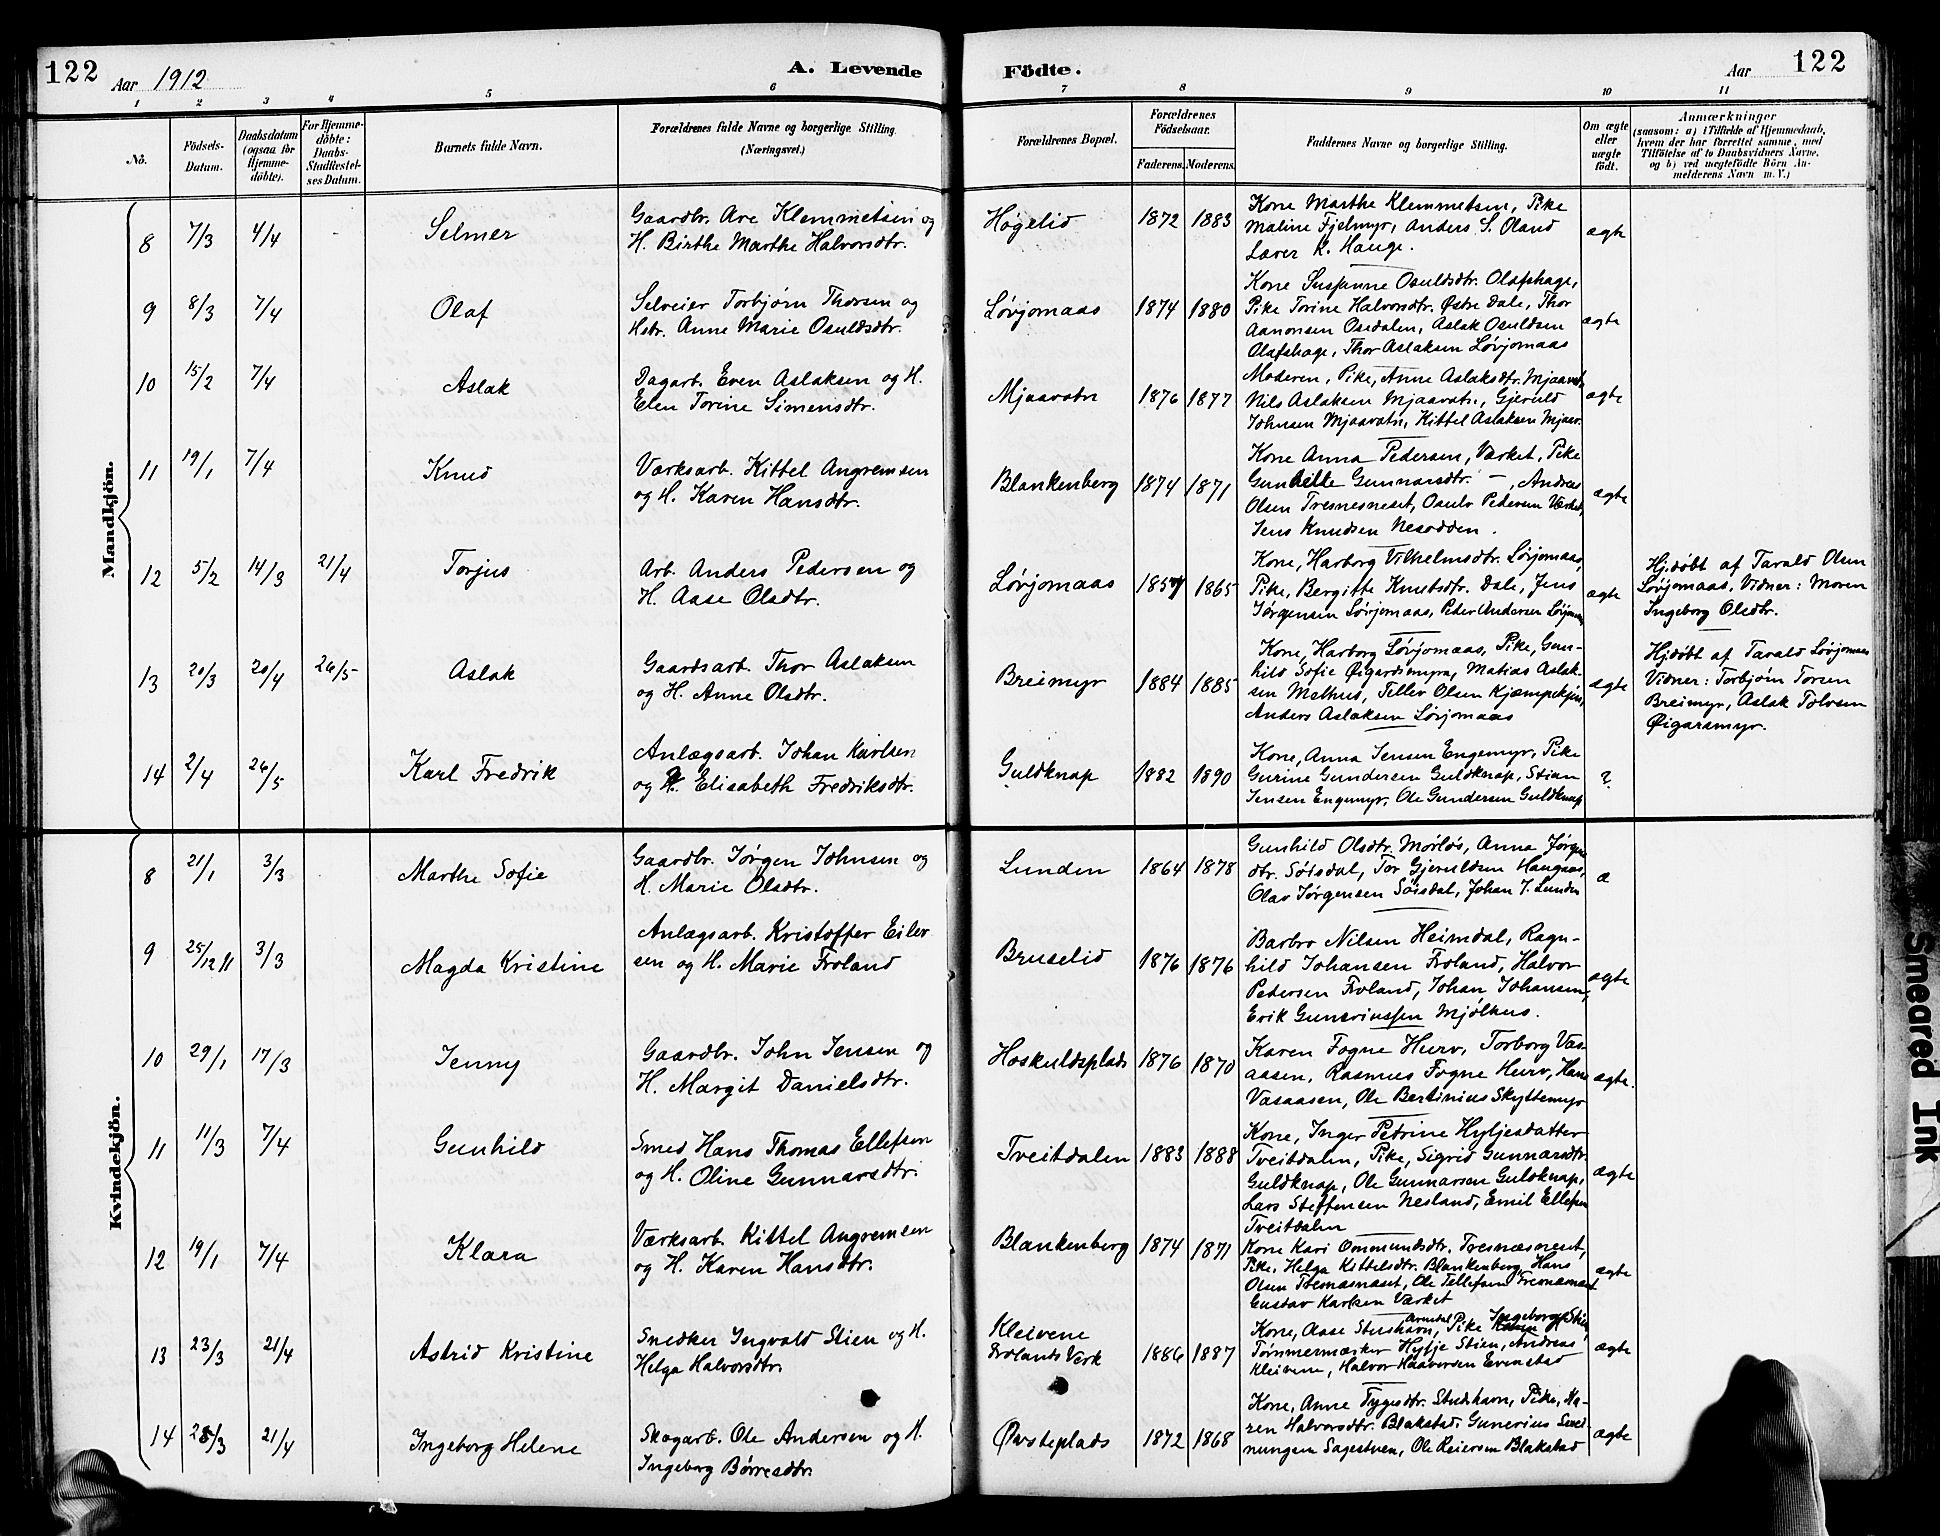 122
Aar 1912
A. Levende
Födte.
Aar
122
1 2 3 4 5 6 7 8 9 10 11
No.
Födsels-
Datum.
Daabsdatum
(ogsaa for
Hjemme-
döbte).
For Hjemme-
döbte:
Daabs-
Stadfæstel-
ses Datum.
Barnets fulde Navn.
Forældrenes fulde Navne og borgerlige Stilling
(Næringsvei.)
Forældrenes Bopæl.
Forældrenes
Födselsaar.
Faderens. Moderens.
Faddernes Navne og borgerlige Stilling.
Om ægte
eller
uægte
født.
Anmærkninger
(saasom: a) i Tilfælde af Hjemmedaab,
hvem der har forrettet samme, med
Tilföielse af to Daabsvidners Navne,
og b) ved uegtefödte Börn An-
melderens Navn m. V.)
Mandkjön.
8 7/3 4/4 - Selmer
Gaardbr. Are Klemmetsen og
H. Birthe Marthe Halvorsdtr.
Høgelid 1872 1883
Kone Marthe Klemmetsen, Pike
Maline Fjelmyr, Anders S. Oland
Lærer K. Hauge.
ægte
9 8/3 7/4 Olaf
Selveier Torbjørn Thorsen og
Hstr. Anne Marie Osuldsdtr.
Løvjomaas 1874 1880
Kone Susanne Osuldsdtr. Olafshage,
Pike Torine Halvorsdtr. Østre Dale, Thor
Aanonsen Osedalen, Aslak Osuldsen
Olafshage, Thor Aslaksen Løvjomaas
ægte
10 15/2 7/4 Aslak
Dagarb. Even Aslaksen og H.
Elen Torine Simensdtr.
Mjaavatn 1876 1877
Moderen, Pike, Anne Aslaksdtr. Mjaavatn,
Nils Aslaksen Mjaavatn, Gjeruld
Johnsen Mjaavatn, Kittel Aslaksen Mjaav.
ægte
11 19/1 7/4 Knud
Værksarb. Kittel Angremsen
og H. Karen Hansdtr.
Blankenberg 1874 1871
Kone Anna Pedersen, Værket, Pike
Gunhille Gunnarsdtr. -, Andreas
Olsen Tresnesneset, Osulv Pedersen Værket,
Jens Knudsen Nesodden.
ægte
12 5/2 14/3 21/4 Torjus
Arb. Anders Pedersen og
H. Aase Olsdtr.
Løvjomaas 1857 1865
Kone, Harborg Vilhelmsdtr. Løvjomaas,
Pike, Bergitte Knutsdtr. Dale, Jens
Jørgensen Løvjomaas, Peder Andersen Løvjomaas
ægte
Hjdøbt af Tarald Olsen
Løvjomaas, Vidner: Moren
Ingeborg Olsdtr.
13 20/3 20/4 26/5 Aslak
Gaardsarb. Thor Aslaksen
og H. Anne Olsdtr.
Breimyr 1884 1885
Kone, Harborg Løvjomaas, Pike, Gun-
hild Sofie Øigardsmyra, Matias Aslak-
sen Mæthus, Tellev Olsen Kjæmpekjen,
Anders Aslaksen Løvjomaas
ægte
Hjdøbt af Tarald Løvjomaas
Vidner: Torbjørn Torsen
Breimyr, Aslak Tolvsen
Øigarsmyr.
14 2/4 26/5 Karl Fredrik
Anlægsarb. Johan Karlsen
og H. Elisabeth Fredriksdtr.
Guldknap 1882 1890
Kone, Anna Jensen Engemyr, Pike
Gurine Gundersen Guldknap, Stian
Jensen Engemyr, Ole Gundersen Guldknap
?
Kvindekjön.
8 21/1 3/3 Marthe Sofie
Gaardbr. Jørgen Johnsen og
H. Marie Olsdtr.
Lunden 1864 1878
Gunhild Olsdtr. Mørløs, Anna Jørgens
dtr. Søisdal, Tor Gjeruldsen Haugaas,
Olav Jørgensen Søisdal, Johan J. Lunden
æ
9 25/12 11 3/3 Magda Kristine
Anlægsarb. Kristoffer Eilev
sen og H. Marie Froland
Bruselid 1876 1876
Barbro Nilsen Heimdal, Ragn-
hild Johansen Froland, Halvor
Pedersen Froland, Johan Johansen,
Erik Gunerinssen Mjølhus.
ægte
10 29/1 17/3 Jenny
Gaardbr. John Jensen og
H. Margit Danielsdtr.
Hoskuldsplads 1876 1870
Karen Fogne Hurv, Torborg Vas-
aasen, Rasmus Fogne Hurv, Hans
Vasaasen, Ole Bertinius Skyttemyr
ægte.
11 11/3 7/4 Gunhild
Smed Hans Thomas Ellefsen
og H. Oline Gunnarsdtr.
Tveitdalen 1883 1888
Kone, Inger Petrine Hyljesdatter
Tveitdalen, Pike, Sigrid Gunnarsdtr.
Guldknap, Ole Gunnarsen Guldknap,
Lars Steffensen Nesland, Emil Ellefsen
Tveitdalen
ægte
12 19/1 7/4 Klara
Værksarb. Kittel Angremsen
og H. Karen Hansdtr.
Blankenberg 1874 1871
Kone Kari Ommundsdtr. Tresnæsneset,
Pike, Helga Kittelsdtr. Blankenberg, Hans
Olsen Tresnæsnæset, Ole Tellefsen Tresnæsnæset
Gustav Karlsen Værket
ægte
13 23/3 21/4 Astrid Kristine
Snedker Ingvald Stien og H.
Helga Halvorsdtr.
Kleivene
Frolands Værk 1886 1887
Kone, Aase Stushavn, Arendal, Pike Ingeborg Stien,
Tømmermærker Hylje Stien, Andreas
Kleivene, Halvor Haavorsen Evenstad
ægte
14 28/3 21/4 Ingeborg Helene
Skogarb. Ole Andersen og H.
Ingeborg Børresdtr.
Øvsteplads 1872 1868
Kone, Anne Tygesdtr. Studshavn, Pike, Ka-
ren Halvorsdtr. Blakstad, Gunerius Sven-
nungsen Sagestuen, Ole Reiersen Blakstad
ægte
Smeared Ink